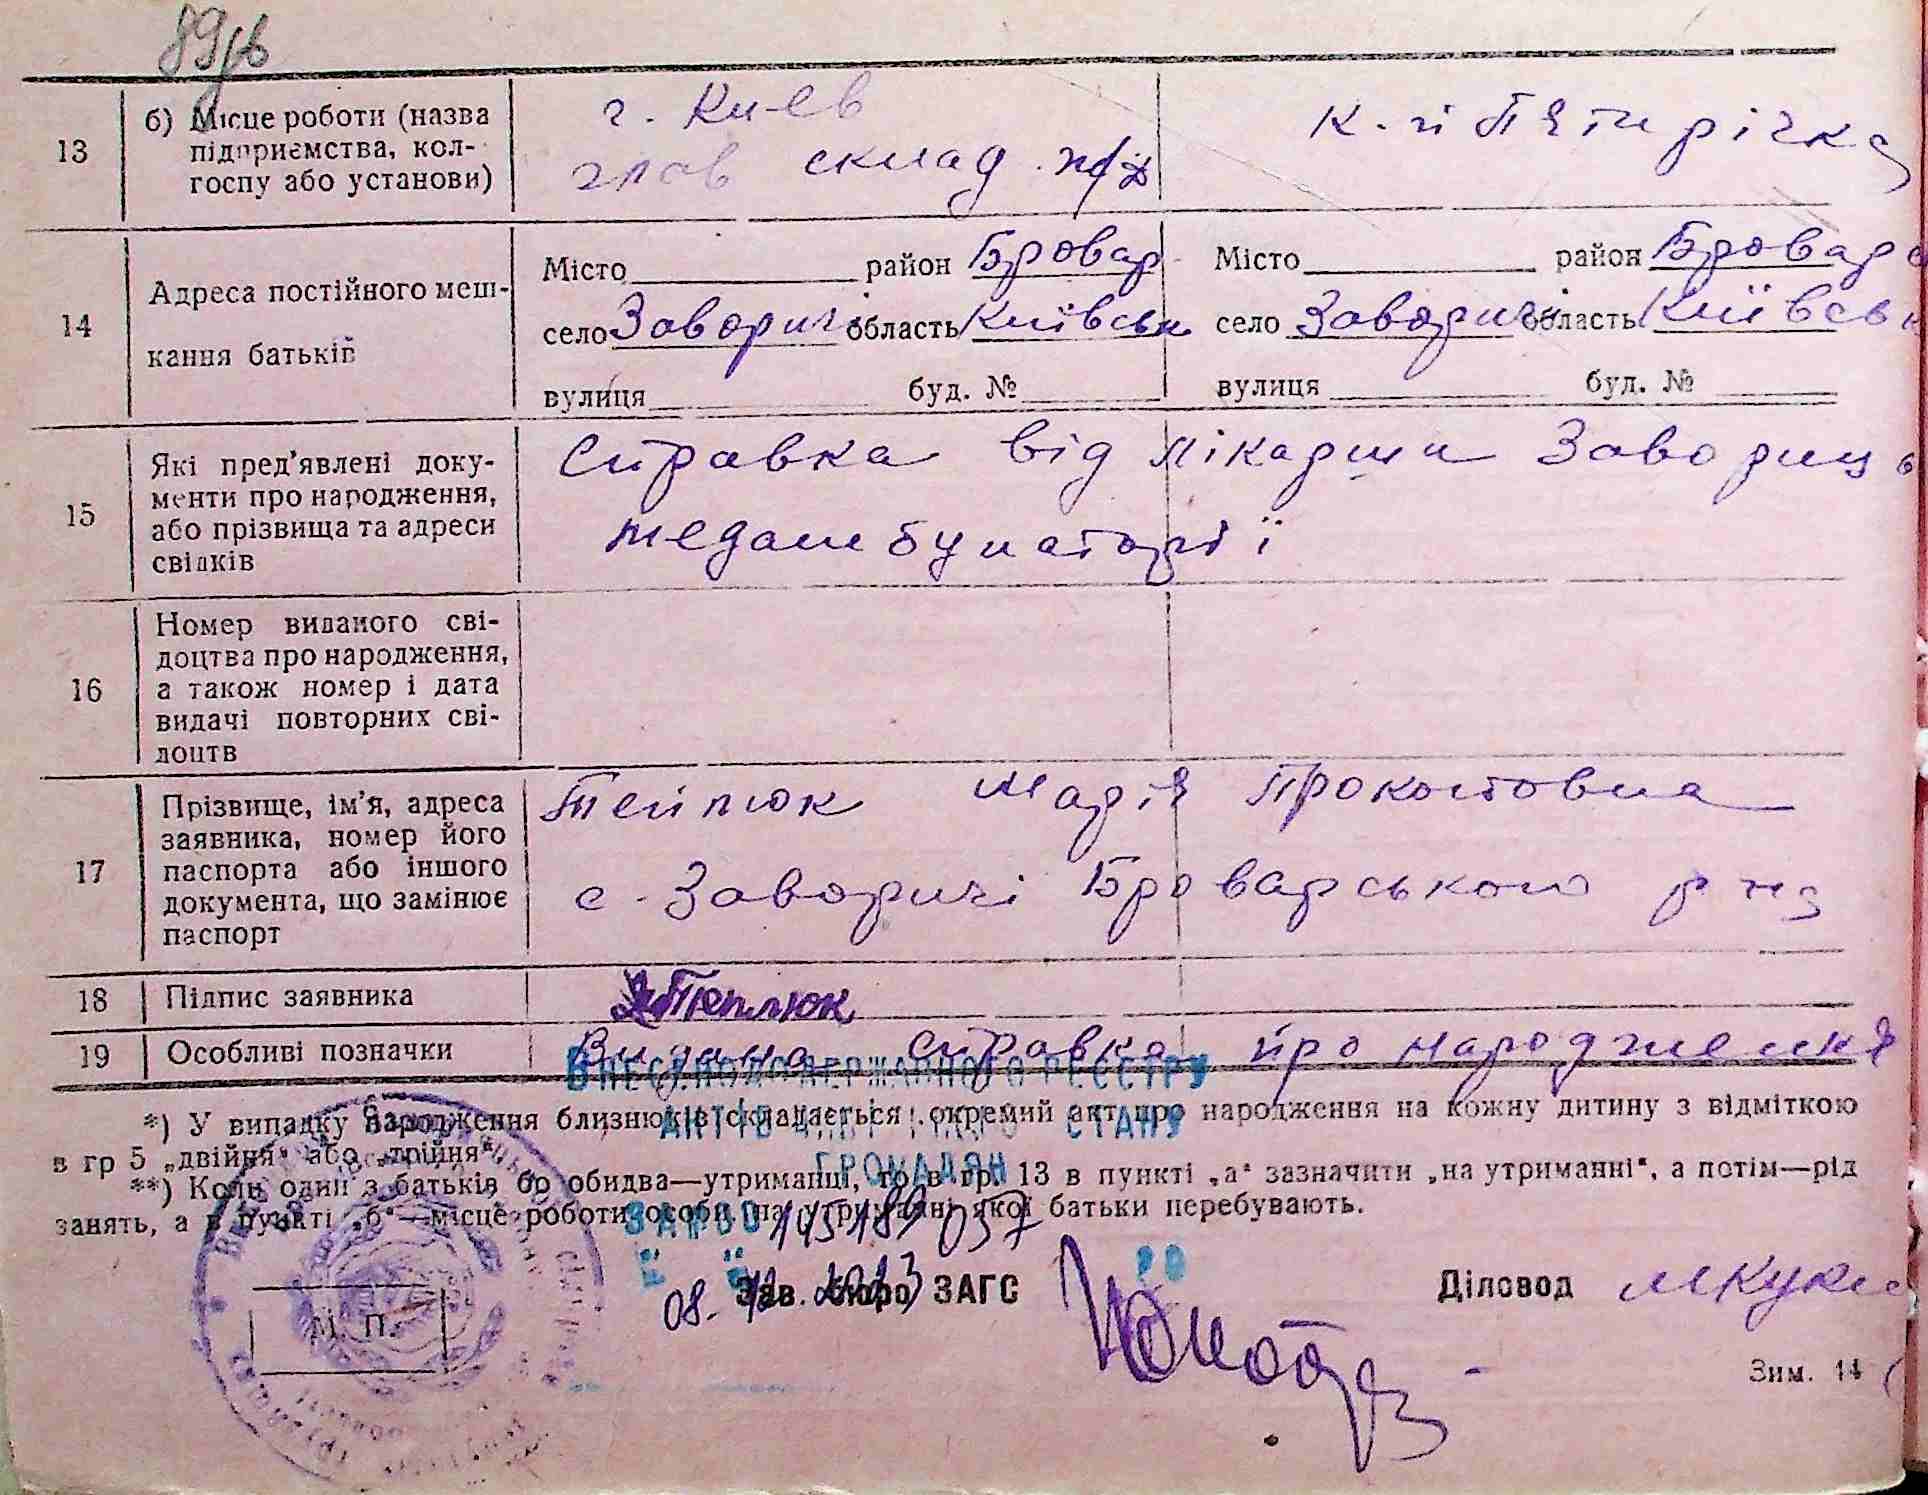 89
13 б) Місце роботи (назва підприємства, колгоспу або установи)
г. Киев
глав склад
к-п П'ятирічка
14 Адреса постійного мешкання батьків
Місто район Бровар
село Заворичі область Київськ
вулиця буд. №
Місто район Бровар
село Заворичі область Київськ
вулиця буд. №
15 Які пред'явлені документи про народження, або прізвища та адреси свідків
Справка від лікарши Заворицьк
медамбулаторії
16 Номер виданого свідоцтва про народження, а також номер і дата видачі повторних свідоцтв
17 Прізвище, ім'я, адреса заявника, номер його паспорта або іншого документа, що замінює паспорт
Теплюк Марія Прокоповна
с. Заворичі Броварського р-на
18 Підпис заявника
Теплюк
19 Особливі позначки
Видана справка про народження
ВНЕСЕНО ДО ДЕРЖАВНОГО РЕЄСТРУ
АКТІВ ЦИВІЛЬНОГО СТАНУ
ГРОМАДЯН
*) У випадку народження близнюків складається окремий акт про народження на кожну дитину з відміткою
в гр 5 „двійня“ або „трійня“.
**) Коли один з батьків бо обидва—утриманці, то в гр. 13 в пункті „а“ зазначити „на утриманні“, а потім—рід
занять, а в пункті „б“—місце роботи особи, на утриманні якої батьки перебувають.
Зав. бюро ЗАГС
Діловод
М. П.
Зим. 14